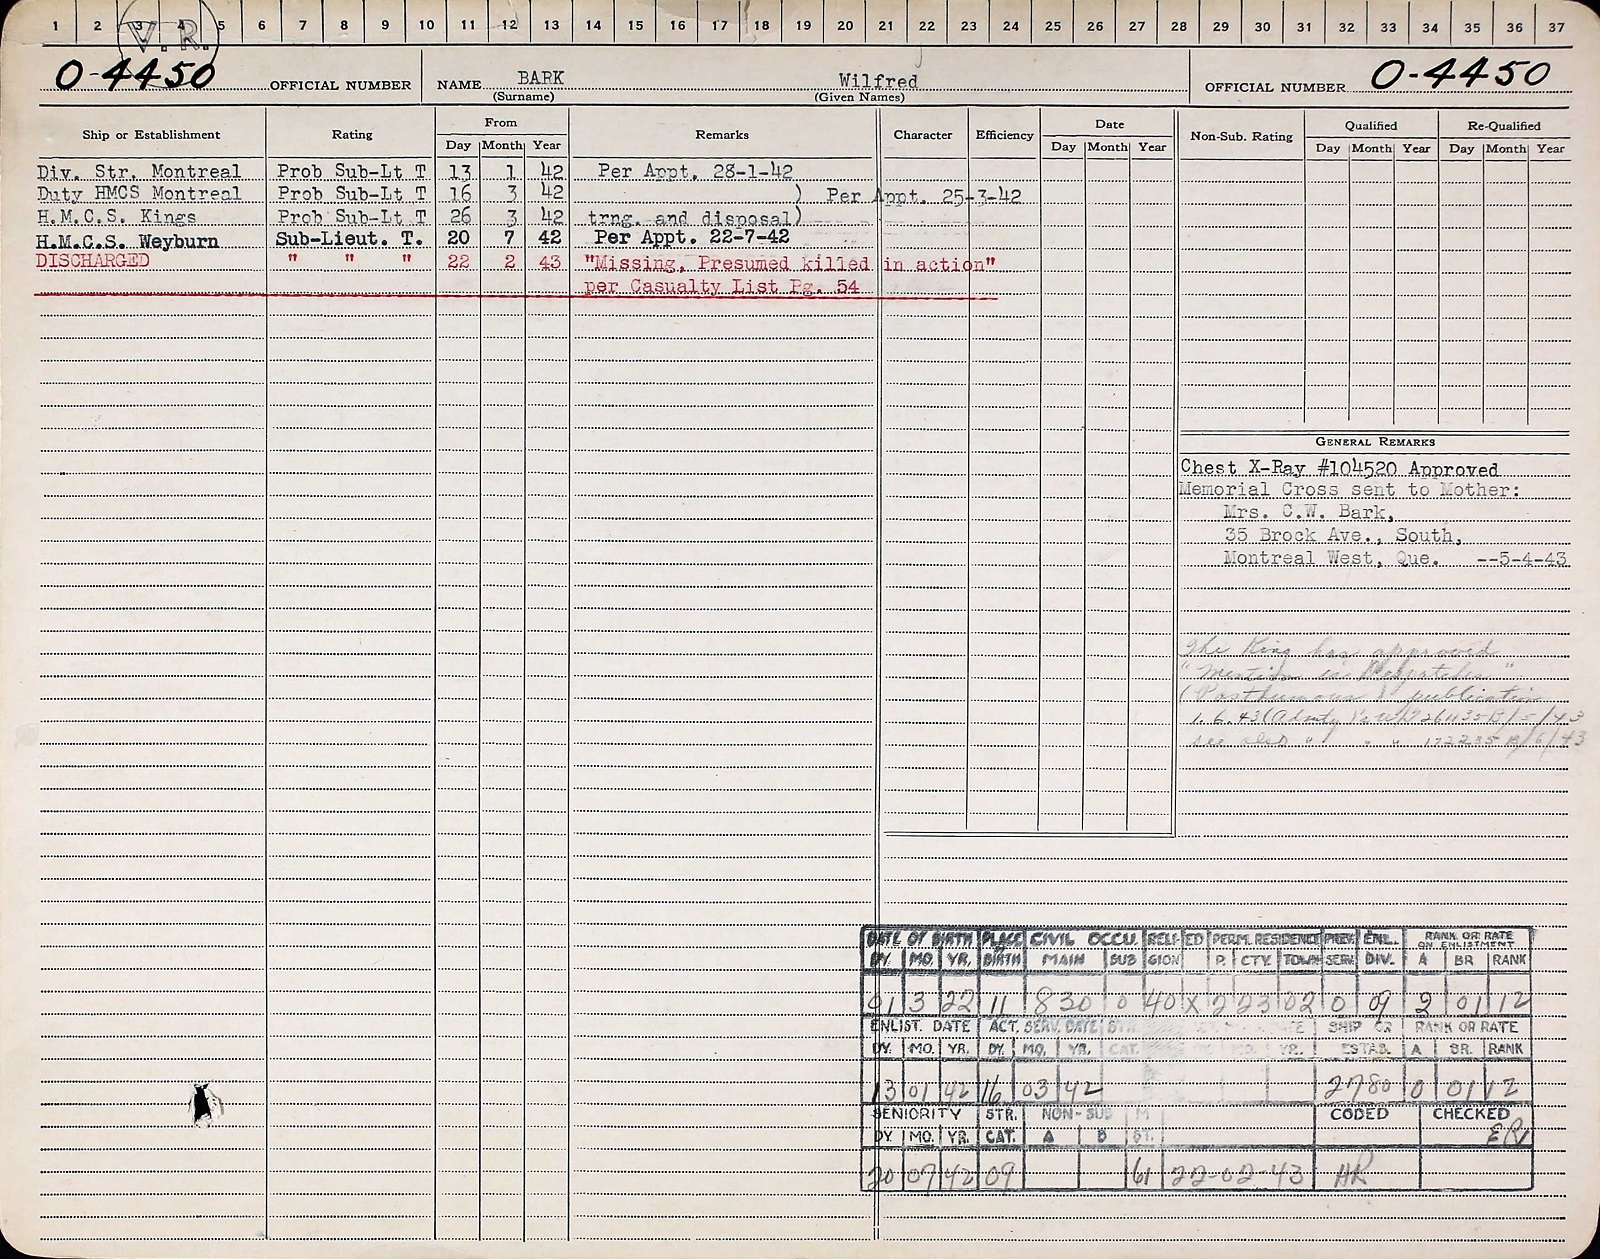 1 2 3 4 5 6 7 8 9 10 11 12 13 14 15 16 17 18 19 20 21 22 23 24 25 26 27 28 29 30 31 32 33 34 35 36 37
V. R.
O-4450 OFFICIAL NUMBER NAME BARK Wilfred OFFICIAL NUMBER O-4450
(Surname) (Given Names)
Ship or Establishment Rating From Remarks Character Efficiency Date Non-Sub. Rating Qualified Re-Qualified
Day Month Year Day Month Year Day Month Year Day Month Year
Div. Str. Montreal Prob Sub-Lt T 13 1 42 Per Appt. 28-1-42
Duty HMCS Montreal Prob Sub-Lt T 16 3 42 ) Per Appt. 25-3-42
H.M.C.S. Kings Prob Sub-Lt T 26 3 42 trng. and disposal)
H.M.C.S. Weyburn Sub-Lieut. T. 20 7 42 Per Appt. 22-7-42
DISCHARGED " " " 22 2 43 "Missing, Presumed killed in action"
per Casualty List Pg. 54
GENERAL REMARKS
Chest X-Ray #104520 Approved
Memorial Cross sent to Mother:
Mrs. C.W. Bark,
35 Brock Ave., South,
Montreal West, Que. --5-4-43
The King has approved
"Mention in Despatches"
(Posthumous) publication
1.6.43 (Admty
see also " " "
DATE OF BIRTH PLACE OF BIRTH CIVIL OCCU. RELIGION ED PERM. RESIDENCE PREV. SERV. ENL. DIV. RANK OR RATE ON ENLISTMENT
DY. MO. YR. MAIN SUB P. CTY. TOWN A BR RANK
01 3 22 11 830 0 40 X 2 23 02 0 09 2 01 12
ENLIST. DATE ACT. SERV. DATE SHIP OR ESTAB. RANK OR RATE
DY. MO. YR. DY. MO. YR. CAT. YR. A BR. RANK
13 01 42 16 03 42 2780 0 01 12
SENIORITY STR. CAT. NON-SUB CODED CHECKED
DY. MO. YR. A B ST. ER
20 07 42 09 61 22-02-43 HR